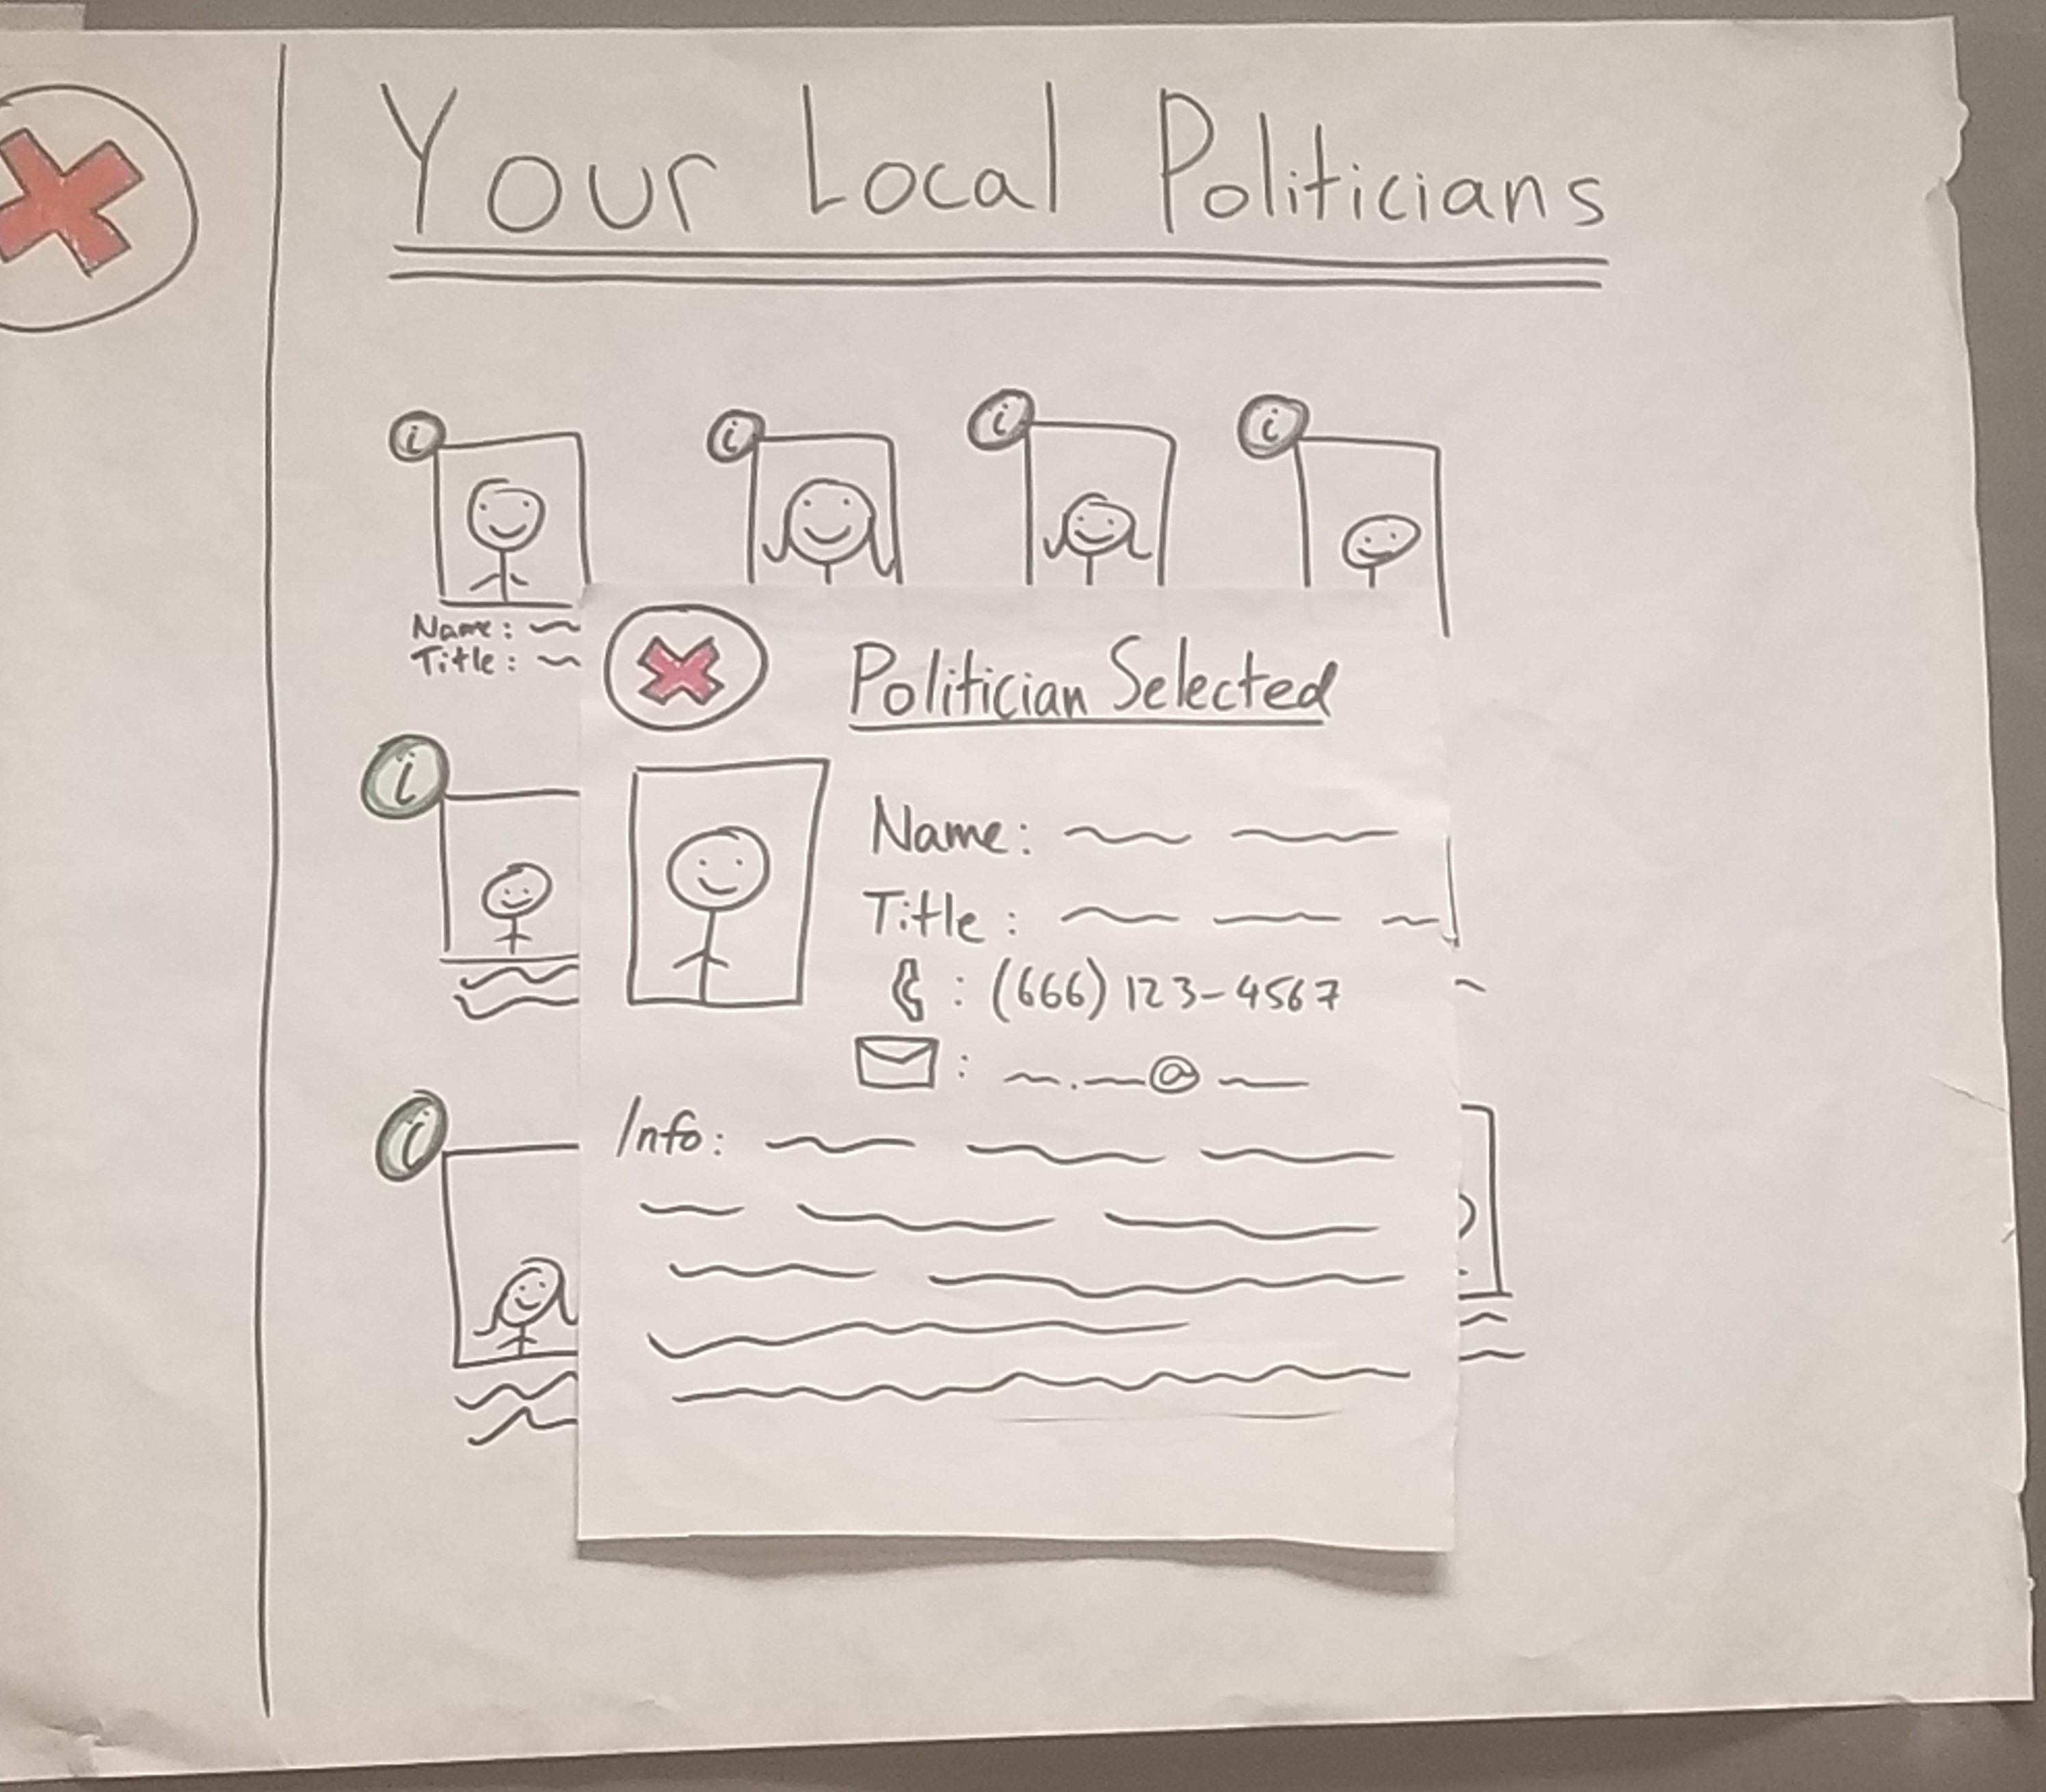 Your Local Politicians
i
i
i
i
Name:
Title:
i
i
Politician Selected
Name:
Title:
: (666) 123-4567
: . @
Info: